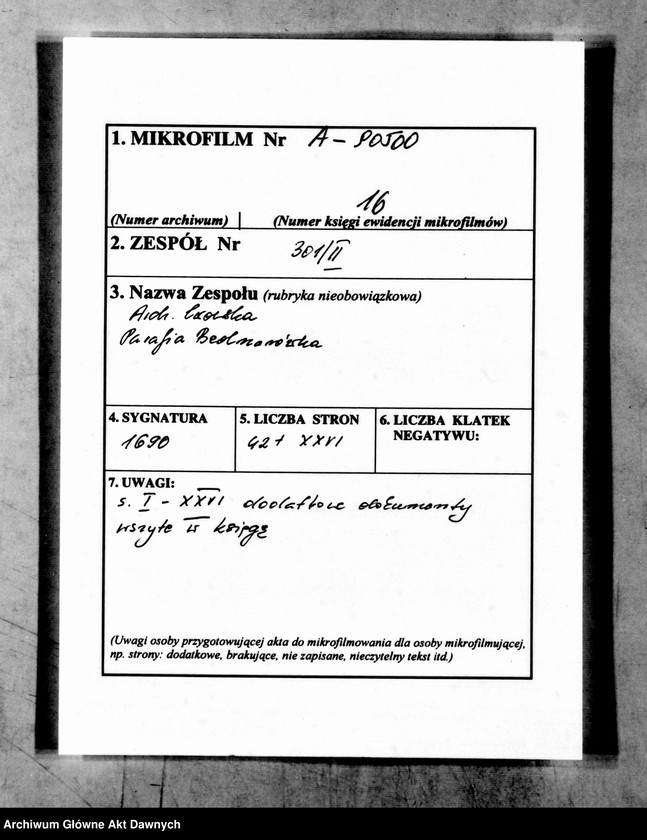 1. MIKROFILM Nr A – 90500
16
(Numer archiwum) (Numer księgi ewidencji mikrofilmów)
2. ZESPÓŁ Nr 301/II
3. Nazwa Zespołu (rubryka nieobowiązkowa)
Arch. Lwowska
Parafia Bednarówka
4. SYGNATURA
1690
5. LICZBA STRON
42 + XXVI
6. LICZBA KLATEK
NEGATYWU:
7. UWAGI:
s. I – XXVI dodatkowe dokumenty
wszyte w księgę
(Uwagi osoby przygotowującej akta do mikrofilmowania dla osoby mikrofilmującej,
np. strony: dodatkowe, brakujące, nie zapisane, nieczytelny tekst itd.)
Archiwum Główne Akt Dawnych